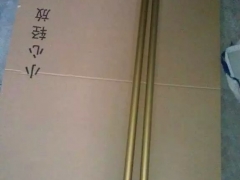 小心轻放